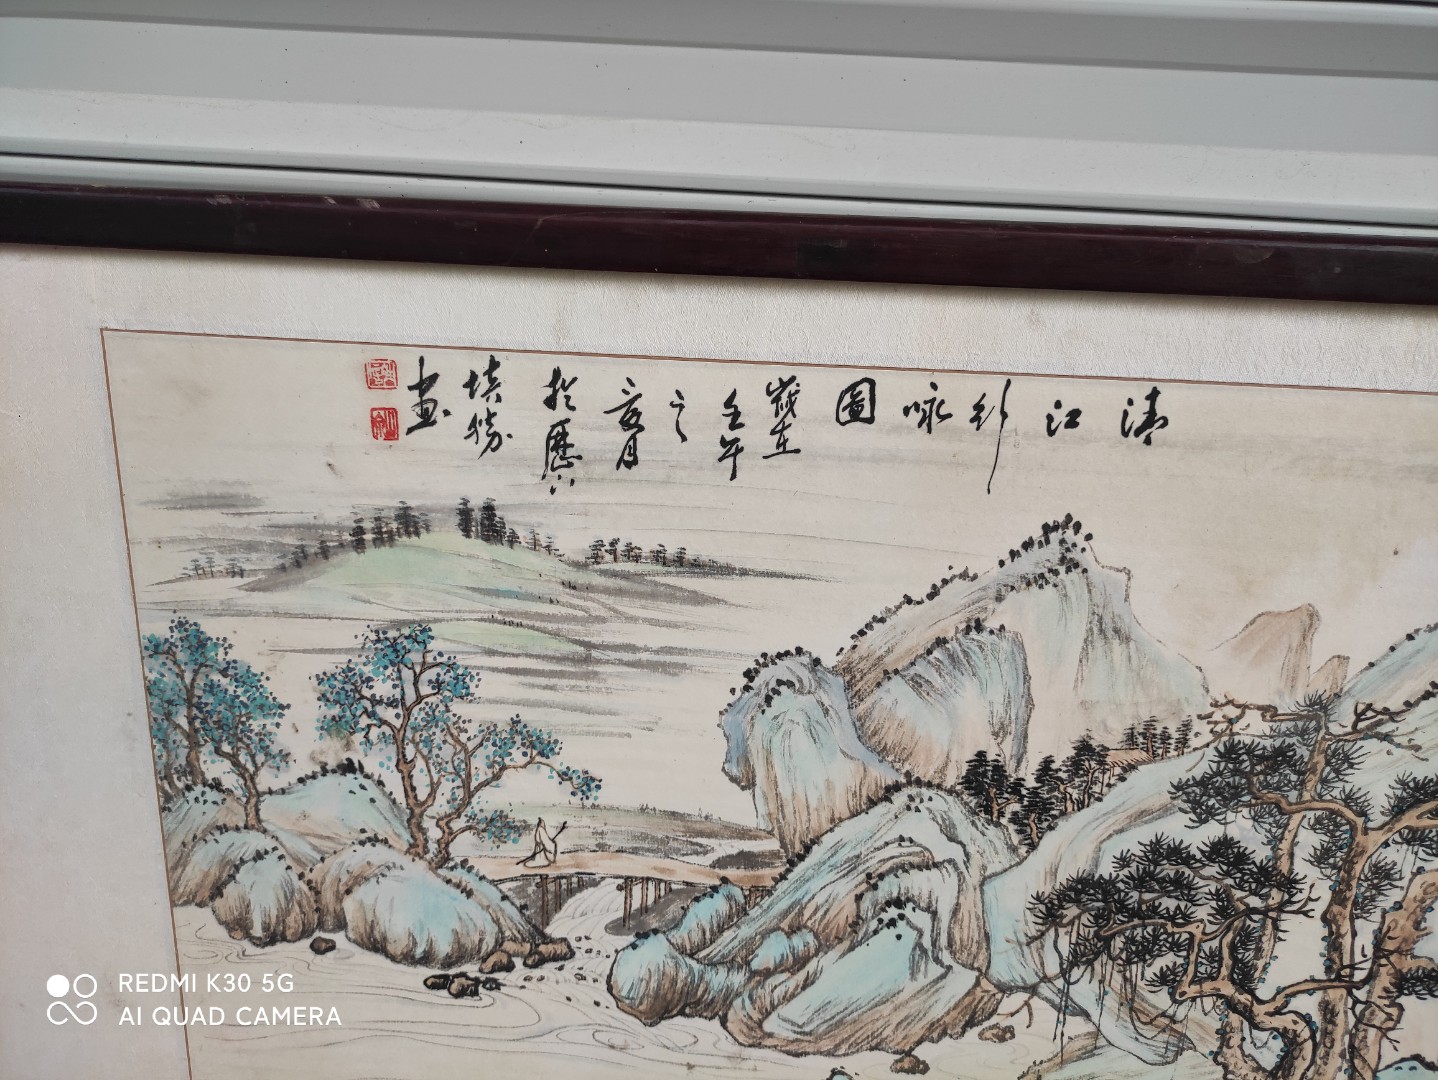 清江行咏圖
歲在
壬午
之
夏月
於歷下
培勝
畫
REDMI K30 5G
AI QUAD CAMERA